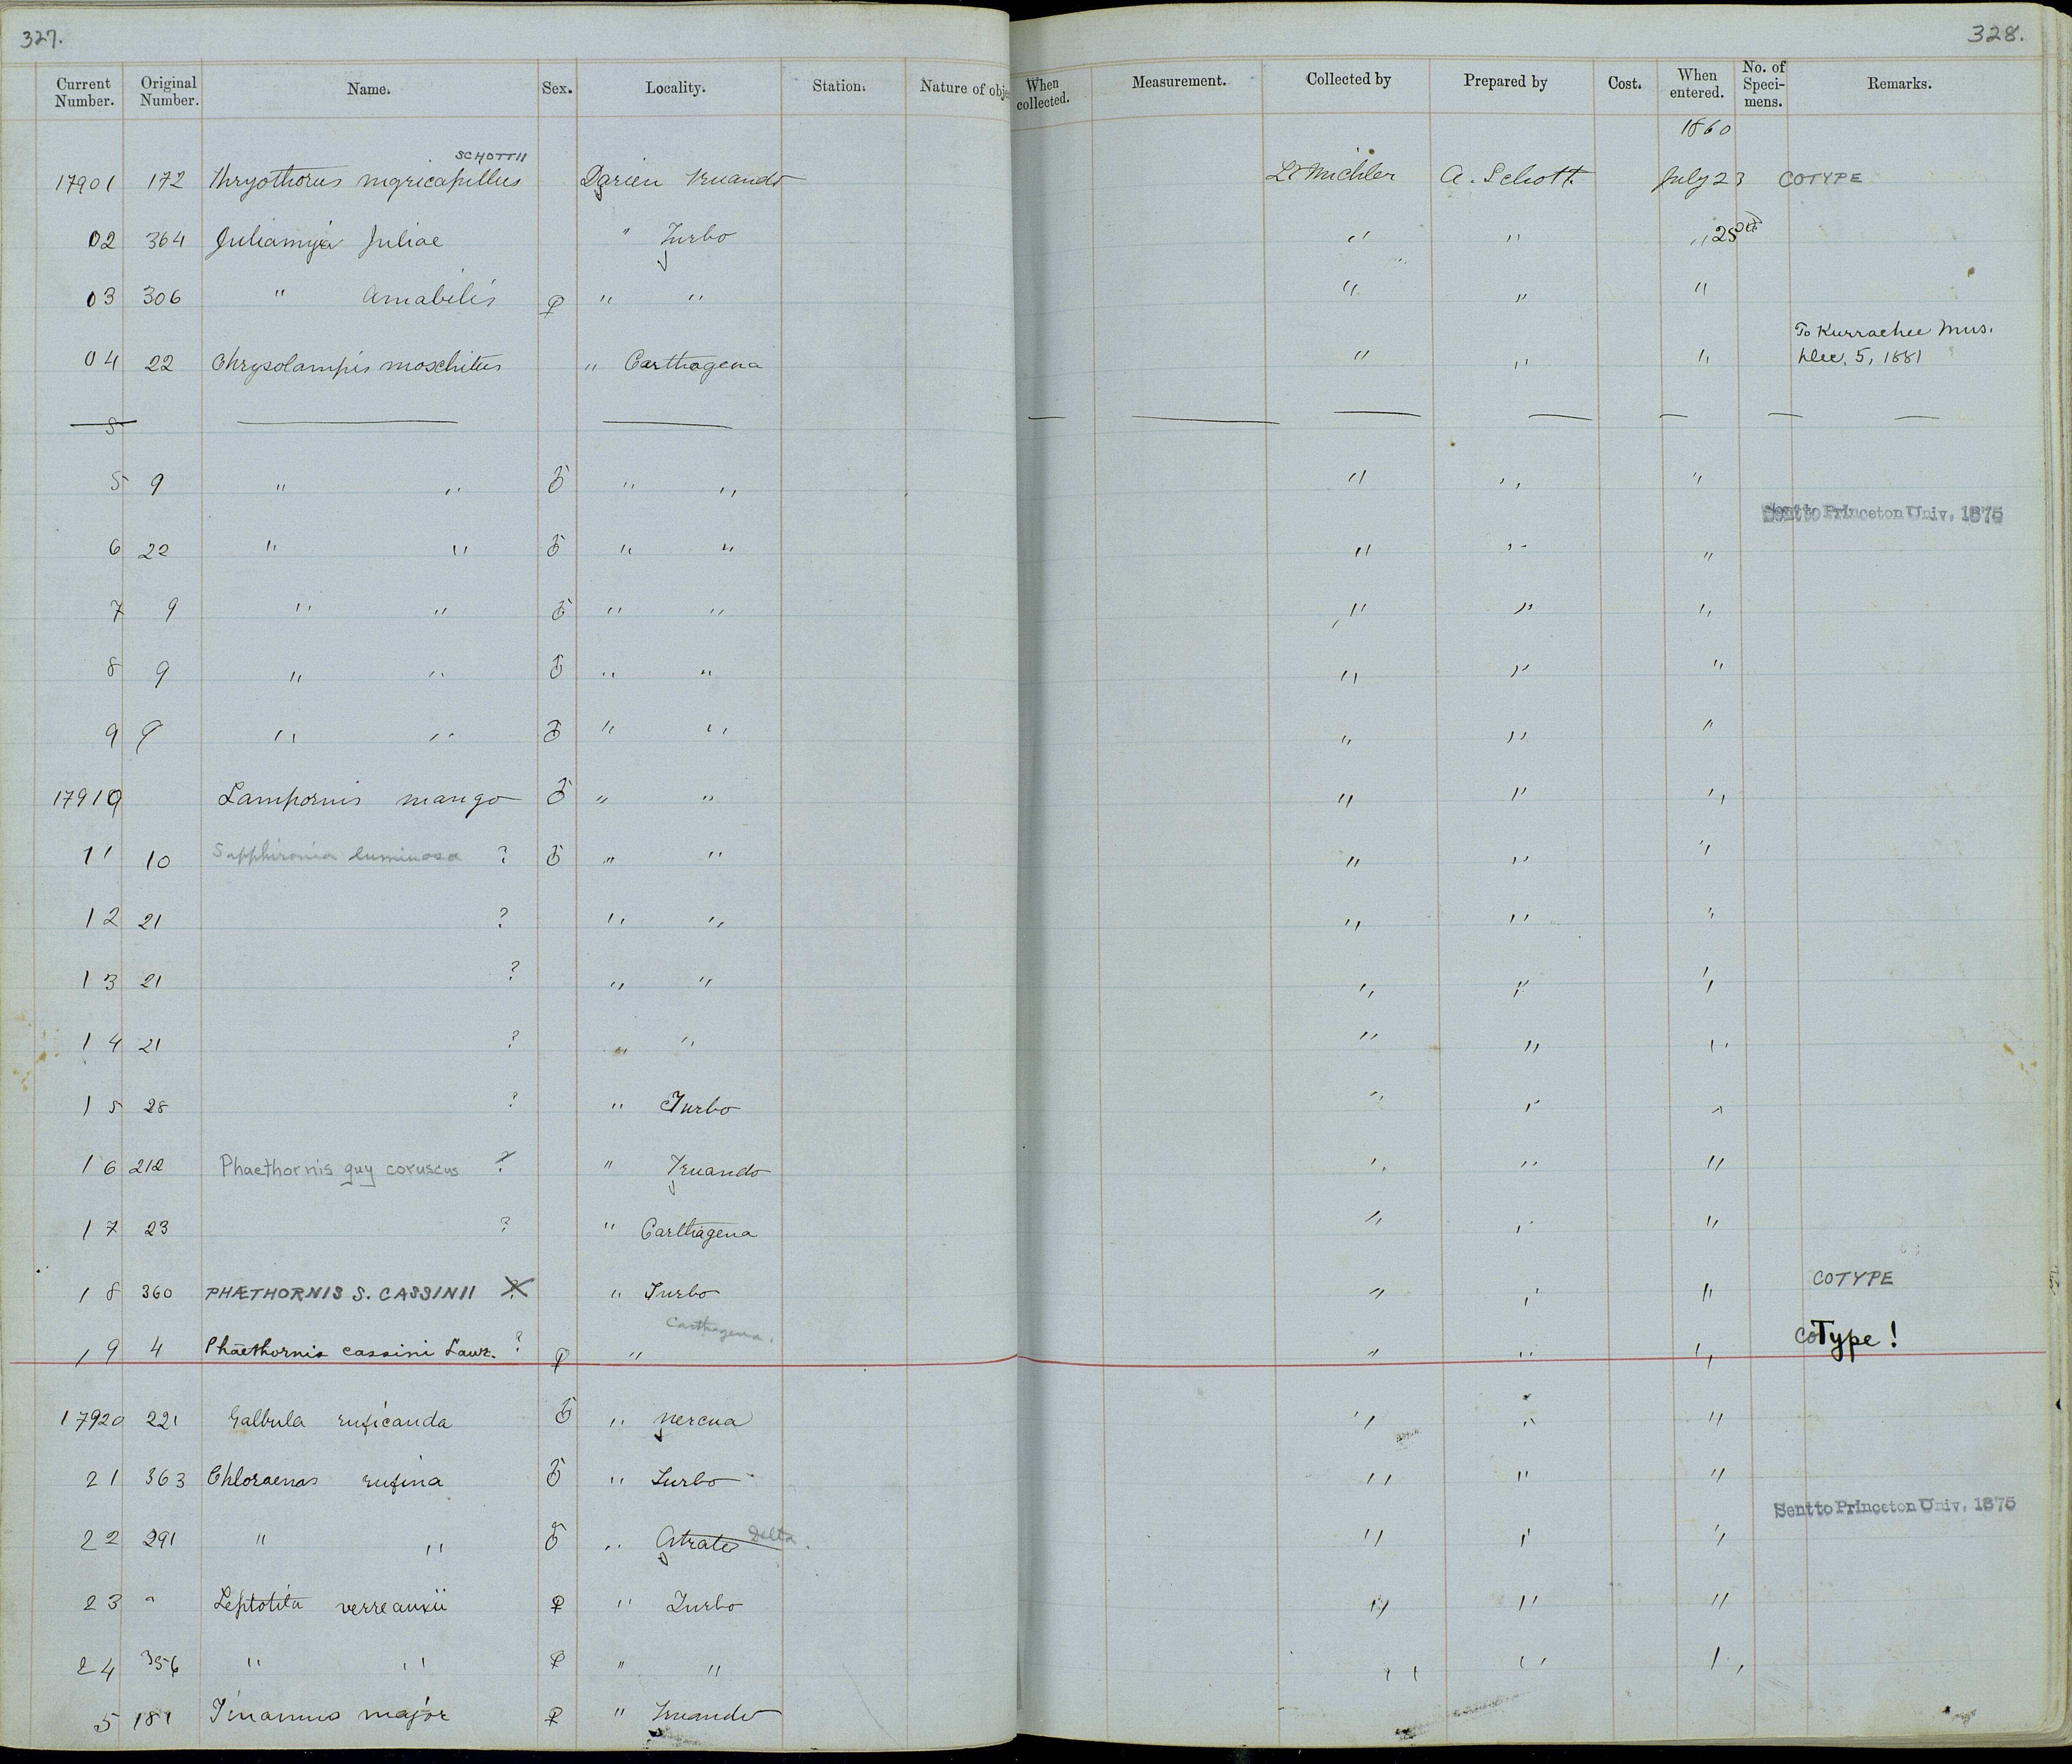 327. 328.
Current Number. Original Number. Name. Sex. Locality. Station. Nature of obje When collected. Measurement. Collected by Prepared by Cost. When entered. No. of Speci-mens. Remarks.
1860
SCHOTTII
17901 172 Thryothorus nigricapillus Darien Truando Lt Michler A. Schott. July 23 COTYPE
02 364 Juliamyia Juliae " Turbo " " " 25
03 306 " Amabilis ♀ " " " " "
To Kurrachee Mus.
04 22 Chrysolampis moschitus " Carthagena " " " Dec. 5, 1881
5
5 9 " " ♂ " " " " "
Sent to Princeton Univ. 1875
6 22 " " ♂ " " " " "
7 9 " " ♂ " " " " "
8 9 " " ♂ " " " " "
9 9 " " ♂ " " " " "
17910 Lampornis mango ♂ " " " " "
11 10 Sapphironia luminosa ? ♂ " " " " "
12 21 ? " " " " "
13 21 ? " " " " "
14 21 ? " " " " "
15 28 ? " Turbo " " "
16 212 Phaethornis guy coruscus ? " Truando " " "
17 23 ? " Carthagena " " "
18 360 PHÆTHORNIS S. CASSINII ? " Turbo " " " COTYPE
Carthagena.
19 4 Phaethornis cassini Lawr. ? ♀ " " " " coType!
17920 221 Galbula ruficauda ♂ " Nercua " " "
21 363 Chloraenas rufina ♂ " Turbo " " "
Sent to Princeton Univ. 1875
22 291 " " ♂ " Atrato Delta. " " "
23 " Leptotila verreauxii ♀ " Turbo " " "
24 356 " " ♀ " " " " "
5 181 Tinamus major ♀ " Truando